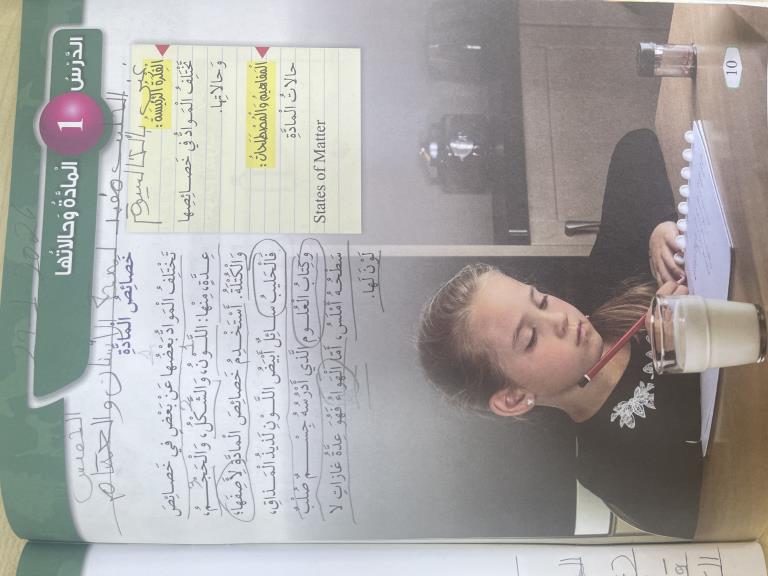 الدَّرْسُ 1 الْمَادَّةُ وَحَالَاتُهَا
الْفِكْرَةُ الرَّئِيسَةُ:
تَخْتَلِفُ الْمَوَادُّ فِي خَصَائِصِهَا
وَحَالَاتِهَا.
الْمَفَاهِيمُ وَالْمُصْطَلَحَاتُ:
حَالَاتُ الْمَادَّةِ
States of Matter
خَصَائِصُ الْمَادَّةِ
تَخْتَلِفُ الْمَوَادُّ بَعْضُهَا عَنْ بَعْضٍ فِي خَصَائِصَ
عِدَّةٍ، مِنْهَا: اللَّوْنُ، وَالشَّكْلُ، وَالْحَجْمُ،
وَالْكُتْلَةُ. أَسْتَخْدِمُ خَصَائِصَ الْمَادَّةِ لِأَصِفَهَا؛
فَالْحَلِيبُ سَائِلٌ أَبْيَضُ اللَّوْنِ لَذِيذُ الْمَذَاقِ،
وَكِتَابُ الْعُلُومِ الَّذِي أَدْرُسُهُ جِسْمٌ صُلْبٌ
سَطْحُهُ أَمْلَسُ، أَمَّا الْهَوَاءُ فَهُوَ عِدَّةُ غَازَاتٍ لَا
لَوْنَ لَهَا.
10